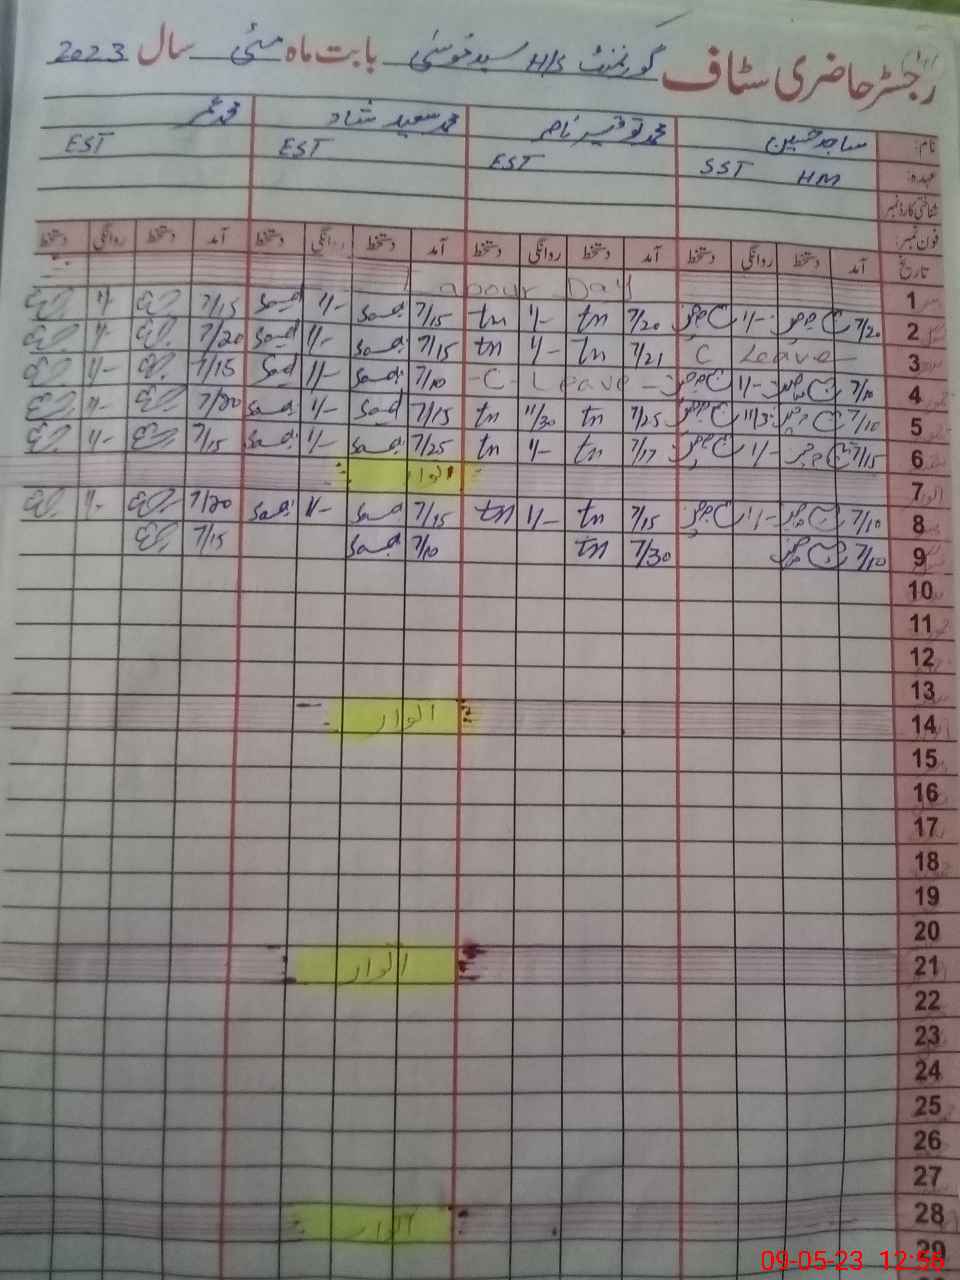 رجسٹر حاضری سٹاف گورنمنٹ H/S سید موسیٰ بابت ماہ مئی سال 2023
نام: ساجد حسین محمد توقیر ناصر محمد سعید شاد محمد عمر
عہدہ: SST HM EST EST EST
شناختی کارڈ نمبر
فون نمبر:
تاریخ آمد دستخط روانگی دستخط آمد دستخط روانگی دستخط آمد دستخط روانگی دستخط آمد دستخط روانگی دستخط
1 Labour Day
2 7/20 1/- 7/20 tn 1/- tn 7/15 Saad 1/- Saad 7/15 1/-
3 C Leave 7/21 tn 1/- tn 7/15 Saad 1/- Saad 7/20 1/-
4 7/10 1/- C Leave 7/10 Saad 1/- Saad 7/15 1/-
5 7/10 11/30 7/25 tn 11/30 tn 7/15 Saad 1/- Saad 7/20 1/-
6 7/15 1/- 7/17 tn 1/- tn 7/25 Saad 1/- Saad 7/15 1/-
7 اتوار
8 7/10 1/- 7/15 tn 1/- tn 7/15 Saad 1/- Saad 7/20 1/-
9 7/10 7/30 tn 7/10 Saad 7/15
10
11
12
13
14 اتوار
15
16
17
18
19
20
21 اتوار
22
23
24
25
26
27
28 اتوار
29
09-05-23 12:56